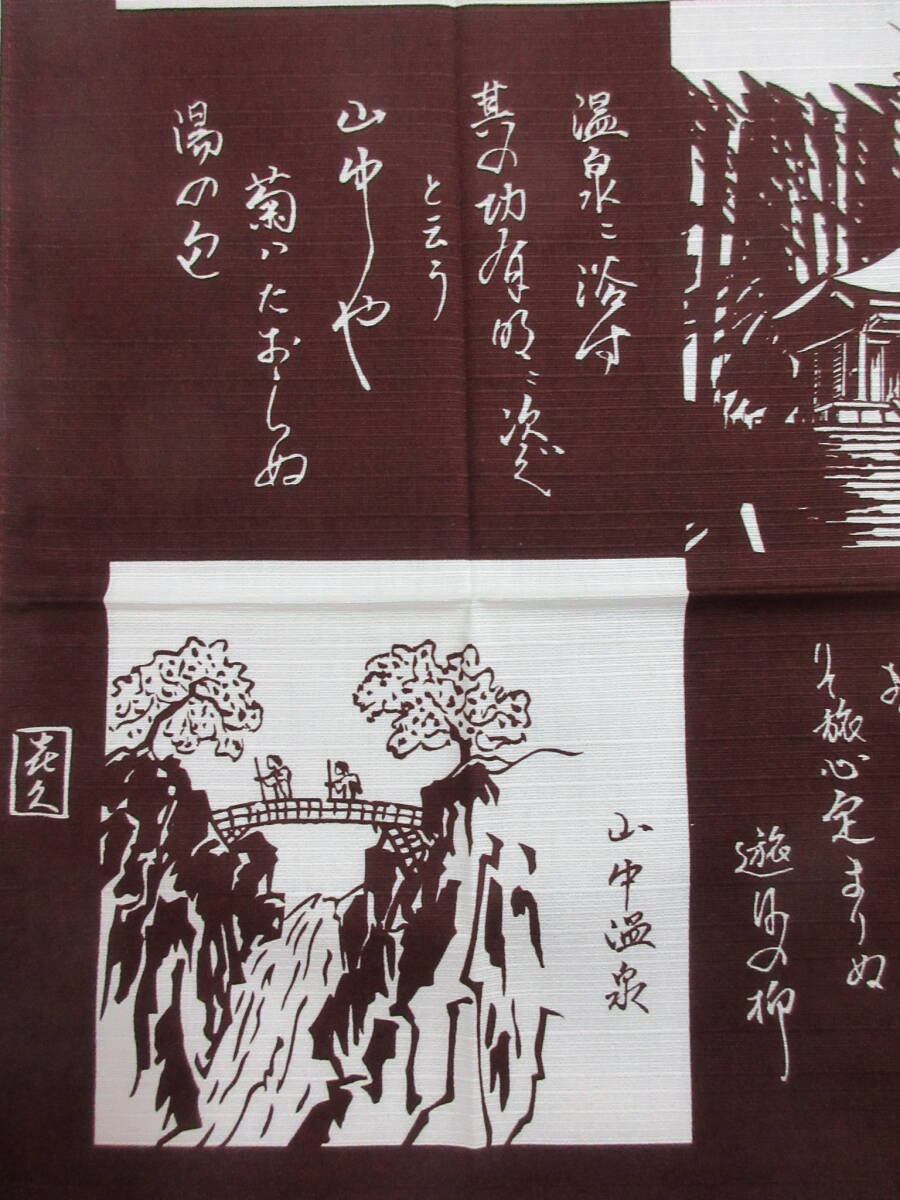 温泉ニ浴す
其の功有明ニ次ぐ
と云う
山中や
菊ハたおらぬ
湯の匂
山中温泉
りそ旅心定まりぬ
遊行の柳
喜久